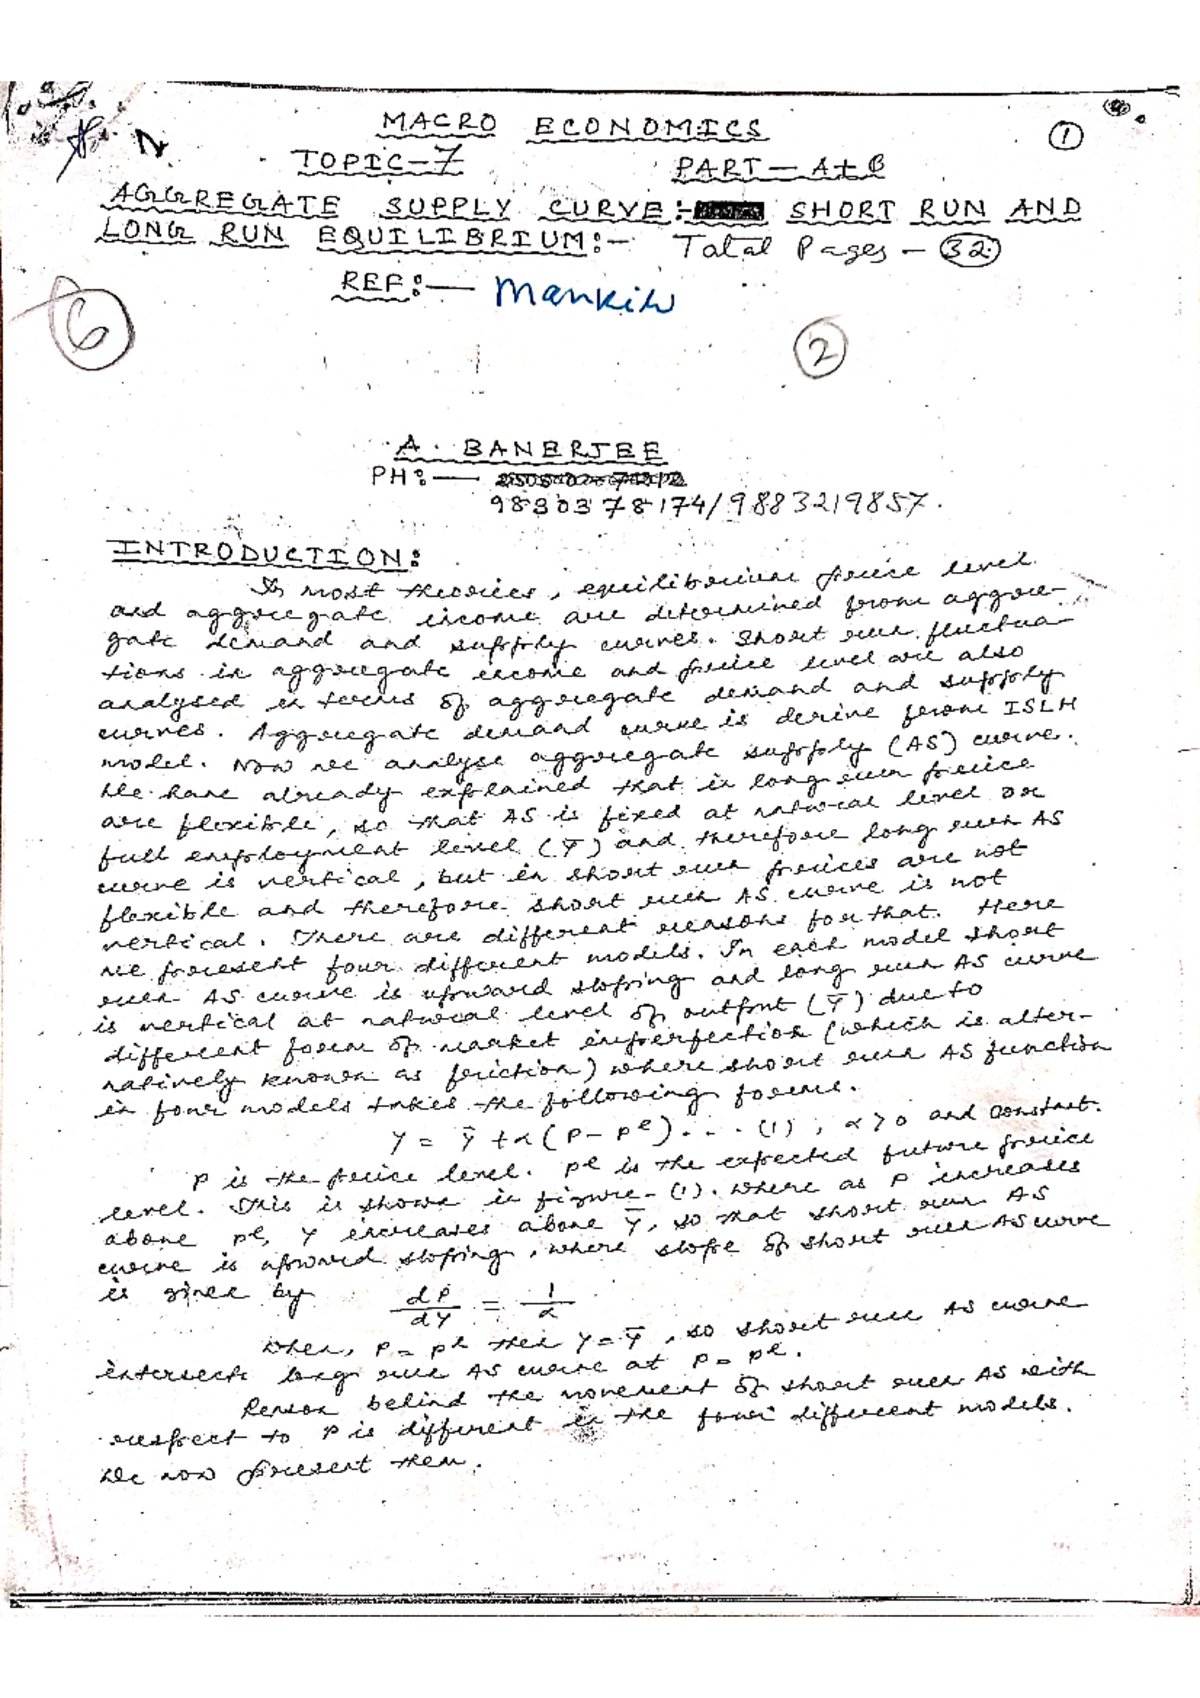 MACRO ECONOMICS
1
TOPIC-7 PART-A+B
AGGREGATE SUPPLY CURVE:- SHORT RUN AND
LONG RUN EQUILIBRIUM:- Total Pages - 32
REF:- Mankiw
6
2
A. BANERJEE
PH:-
9830378174/9883219857.
INTRODUCTION:
In most theories, equilibrium price level
and aggregate income are determined from aggre-
gate demand and supply curves. Short run fluctua-
tions in aggregate income and price level are also
analysed in terms of aggregate demand and supply
curves. Aggregate demand curve is derive from ISLM
model. Now we analyse aggregate supply (AS) curve.
We have already explained that in long run price
are flexible, so that AS is fixed at natural level or
full employment level (Ȳ) and therefore long run AS
curve is vertical, but in short run prices are not
flexible and therefore short run AS curve is not
vertical. There are different reasons for that. Here
we present four different models. In each model short
run AS curve is upward sloping and long run AS curve
is vertical at natural level of output (Ȳ) due to
different form of market imperfection (which is alter-
natively known as friction) where short run AS function
in four models takes the following forms.
Y = Ȳ + α (P - Pᵉ) ... (1), α > 0 and constant.
P is the price level. Pᵉ is the expected future price
level. This is shown in figure-(1). Where as P increases
above Pᵉ, Y increases above Ȳ, so that short run AS
curve is upward sloping, where slope of short run AS curve
is given by dP/dY = 1/α
When, P = Pᵉ then Y = Ȳ, so short run AS curve
intersects long run AS curve at P = Pᵉ.
Reason behind the movement of short run AS with
respect to P is different in the four different models.
We now present them.